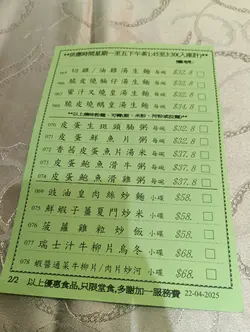 **供應時間星期一至五下午
切雞/油雞湯生麵 每碗 $32.8
脆皮燒腩仔湯生麵 每碗 $32.8
蜜汁叉燒皇湯生麵 每碗 $32.8
脆皮燒鵝皇湯生麵 每碗
070 皮蛋生班頭腩粥 每碗 $32.8
071 皮蛋鮮魚片粥 每碗 $34.8
072 香茜皮蛋魚片湯米 每碗 $37.8
073 皮蛋鮑魚滑牛粥 每碗 $37.8
074 皮蛋鮑魚滑雞粥 每碗 $37.8
豉油皇肉絲炒麵 小碟 $58.
075 鮮蝦子薑夏門炒米 小碟 $58.
076 菠蘿雞粒炒飯 小碟 $58.
077 瑞士汁牛柳片烏冬 小碟 $68.
078 蝦醬通菜牛柳片/肉片炒河 小碟 $68.
2/2 以上優惠食品,只限堂食,多謝加一服務費 22-04-2025